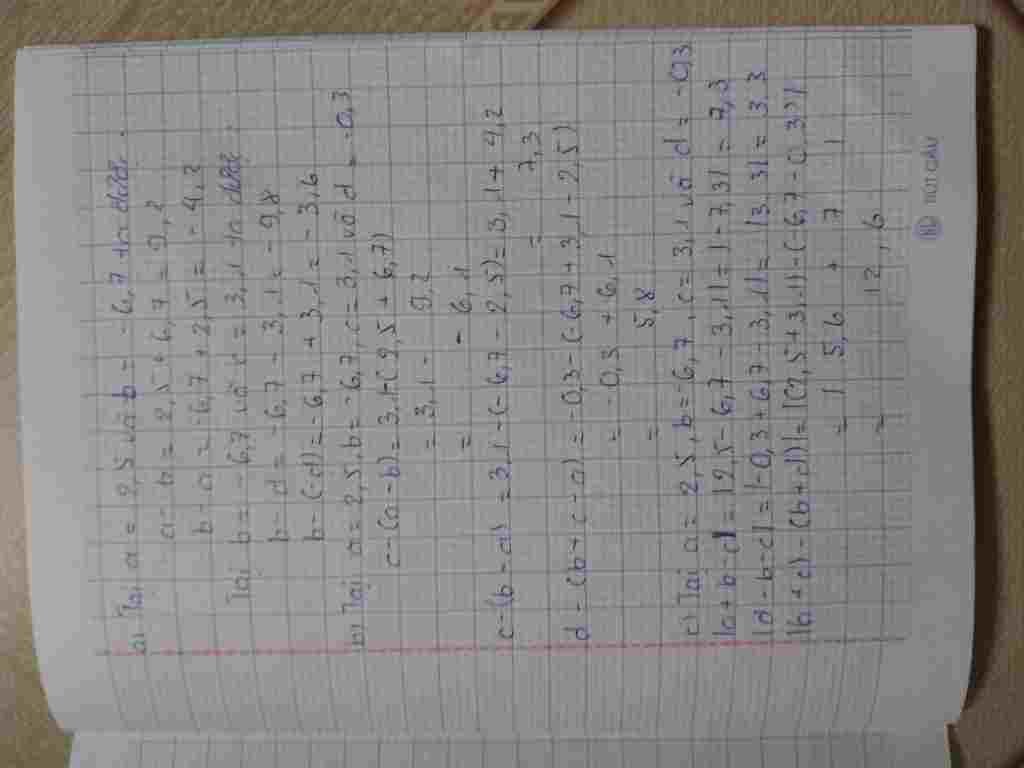 a) Tại a = 2,5 và b = -6,7 ta được.
a - b = 2,5 + 6,7 = 9,2
b - a = -6,7 + 2,5 = -4,2
Tại b = -6,7 và c = 3,1 ta được.
b - d = -6,7 - 3,1 = -9,8
b - (-d) = -6,7 + 3,1 = -3,6
b) Tại a = 2,5, b = -6,7, c = 3,1 và d = -0,3
c - (a - b) = 3,1 - (2,5 + 6,7)
= 3,1 - 9,2
= - 6,1
c - (b - a) = 3,1 - (-6,7 - 2,5) = 3,1 + 4,2
= 7,3
d - (b + c - a) = -0,3 - (-6,7 + 3,1 - 2,5)
= -0,3 + 6,1
= 5,8
c) Tại a = 2,5, b = -6,7, c = 3,1 và d = -0,3
|a + b - c| = |2,5 - 6,7 - 3,1| = |-7,3| = 7,3
|d - b - c| = |-0,3 + 6,7 - 3,1| = |3,3| = 3,3
|(a + c) - (b + d)| = |(2,5 + 3,1) - (-6,7 - 0,3)|
= | 5,6 + 7 |
= 12,6
TUGIAN